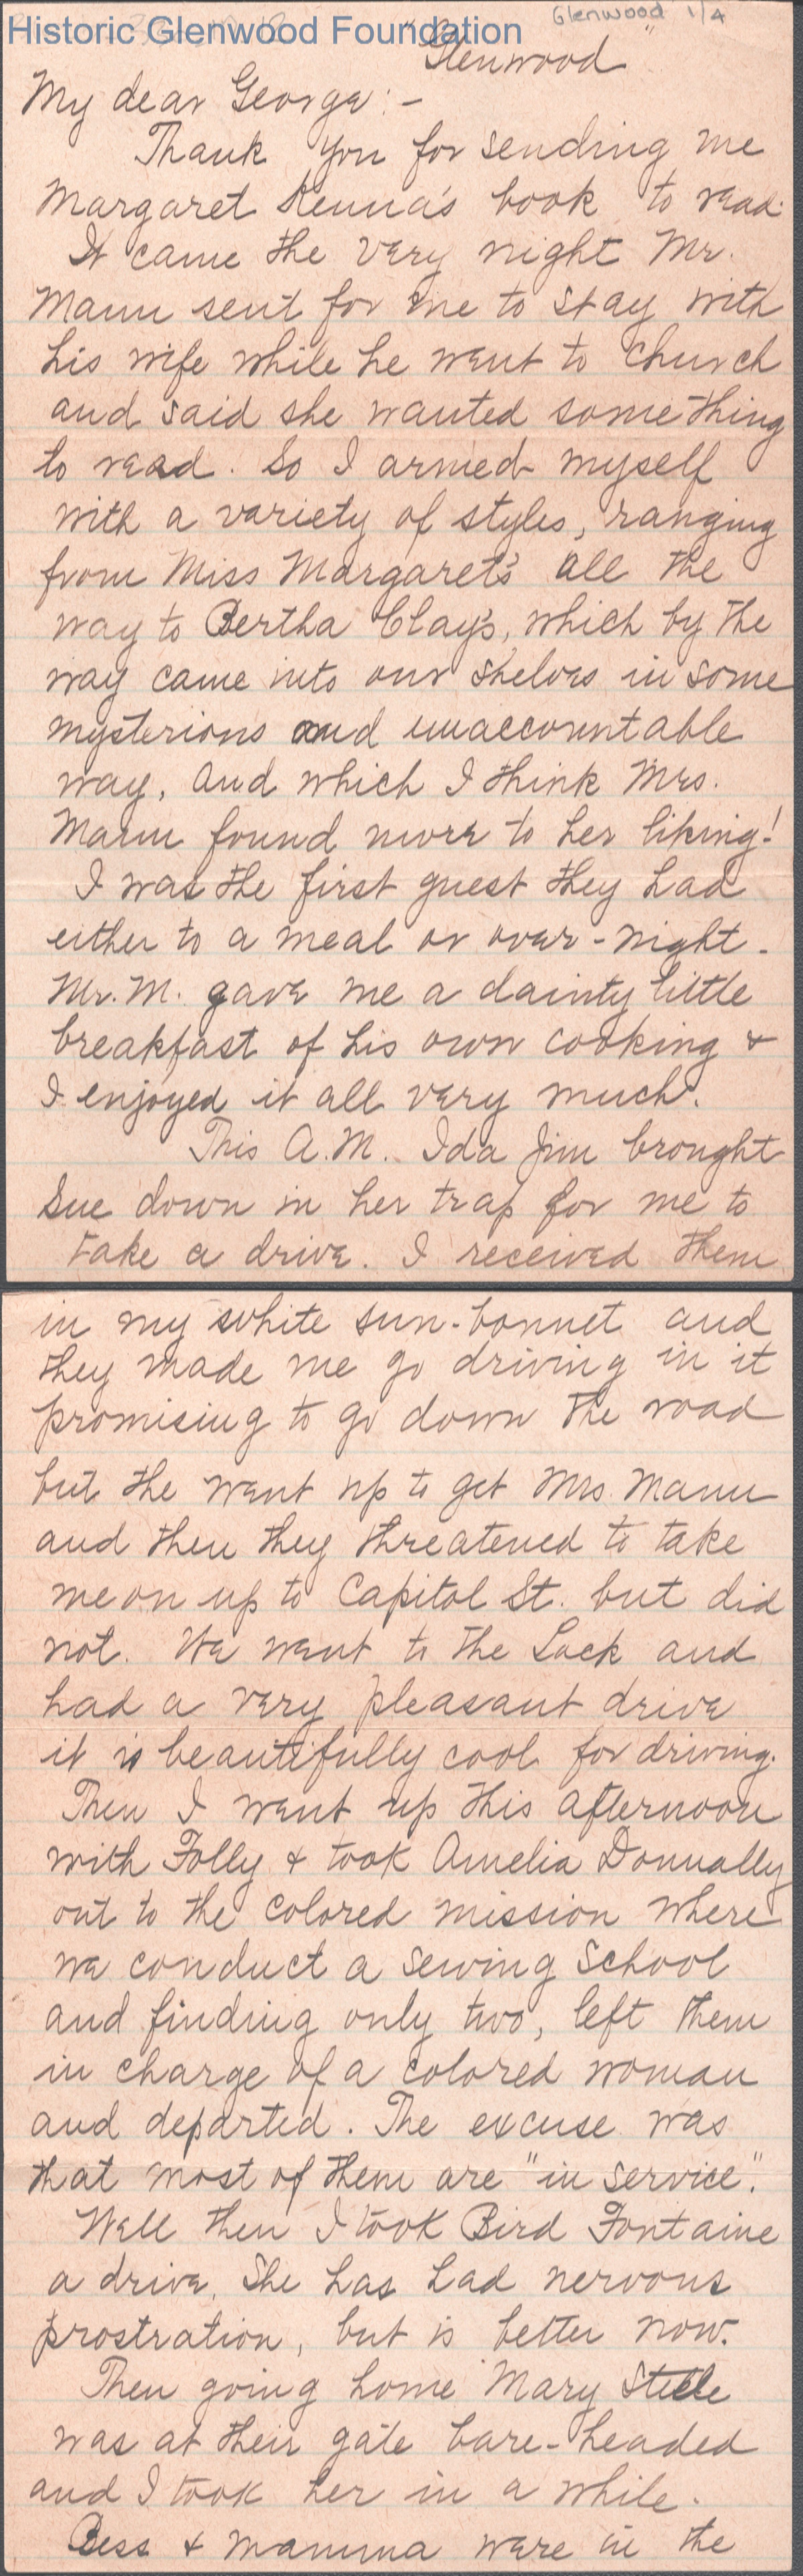 Historic Glenwood Foundation
Glenwood 1/4
"Glenwood"
My dear George:-
Thank you for sending me
Margaret Kenna's book to read.
It came the very night Mr.
Mann sent for me to stay with
his wife while he went to church
and said she wanted something
to read. So I armed myself
with a variety of styles, ranging
from Miss Margaret's all the
way to Bertha Clay's, which by the
way came into our shelves in some
mysterious and unaccountable
way, and which I think Mrs.
Mann found more to her liking!
I was the first guest they had
either to a meal or over-night.
Mr. M. gave me a dainty little
breakfast of his own cooking &
I enjoyed it all very much.
This A.M. Ida Jim brought
Sue down in her trap for me to
take a drive. I received them
in my white sun-bonnet and
they made me go driving in it
promising to go down the road
but the went up to get Mrs. Mann
and then they threatened to take
me on up to Capitol St. but did
not. We went to the Lock and
had a very pleasant drive
it is beautifully cool for driving.
Then I went up this afternoon
with Folly & took Amelia Donnally
out to the colored mission where
we conduct a sewing school
and finding only two, left them
in charge of a colored woman
and departed. The excuse was
that most of them are "in service".
Well then I took Bird Fontaine
a drive. She has had nervous
prostration, but is better now.
Then going home Mary Steele
was at their gate bare-headed
and I took her in a while.
Bess & Mamma were in the